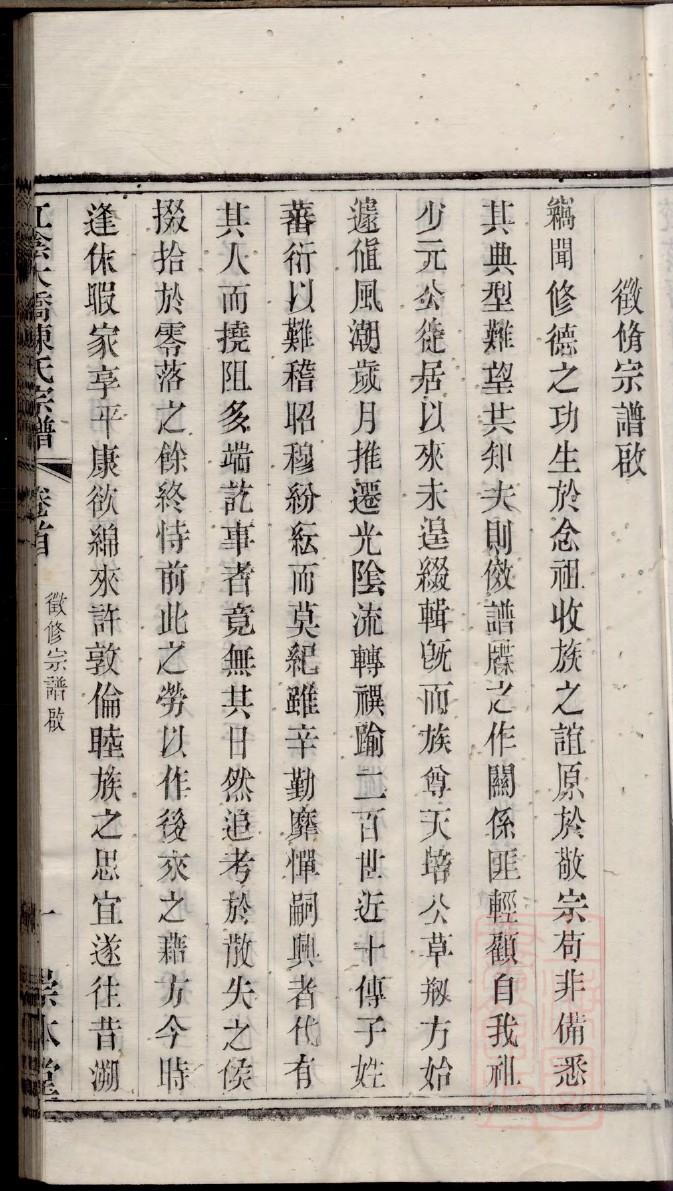 徵脩宗譜啟
竊聞修德之功生於念祖收族之誼原於敬宗苟非備悉
其典型難望共知夫則傚譜牒之作關係匪輕顧自我祖
少元公徙居以來未遑綴輯既而族尊天培公草剏方始
遽值風潮歲月推遷光陰流轉禩踰二百世近十傳子姓
蕃衍以難稽昭穆紛紜而莫紀雖辛勤靡憚嗣興者代有
其人而撓阻多端訖事者竟無其日然追考於散失之後
掇拾於零落之餘終恃前此之勞以作後來之藉方今時
逢休暇家享平康欲綿來許敦倫睦族之思宜遂往昔溯
江陰大橋陳氏宗譜 卷首 徵修宗譜啟 一 崇本堂